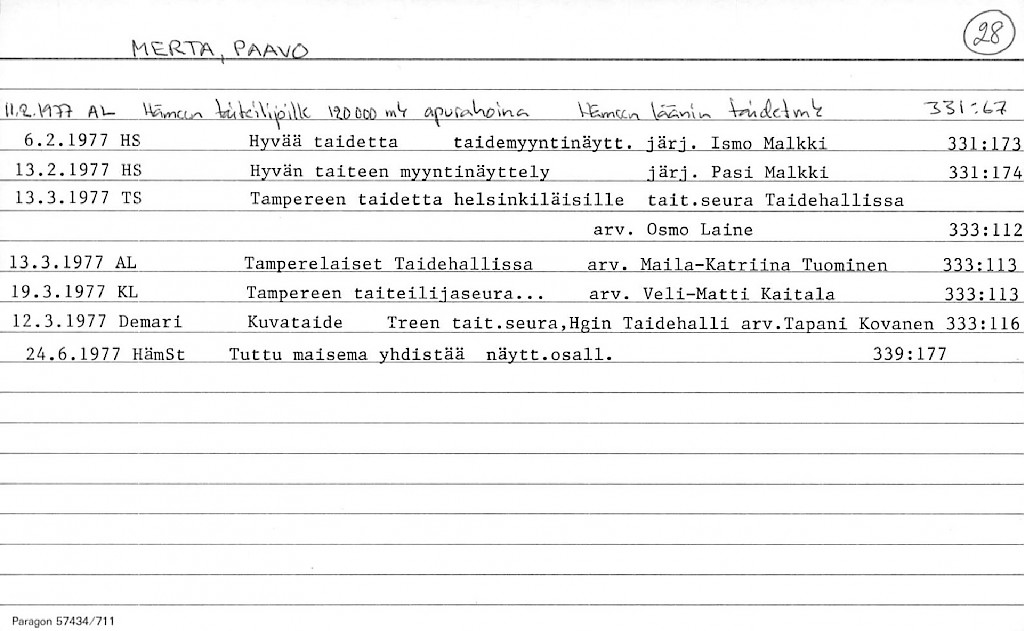 28
MERTA, PAAVO
11.2.1977 AL Hämeen taiteilijoille 120 000 mk apurahoina Hämeen läänin taidetmk 331:67
6.2.1977 HS Hyvää taidetta taidemyyntinäytt. järj. Ismo Malkki 331:173
13.2.1977 HS Hyvän taiteen myyntinäyttely järj. Pasi Malkki 331:174
13.3.1977 TS Tampereen taidetta helsinkiläisille tait.seura Taidehallissa
arv. Osmo Laine 333:112
13.3.1977 AL Tamperelaiset Taidehallissa arv. Maila-Katriina Tuominen 333:113
19.3.1977 KL Tampereen taiteilijaseura... arv. Veli-Matti Kaitala 333:113
12.3.1977 Demari Kuvataide Treen tait.seura,Hgin Taidehalli arv.Tapani Kovanen 333:116
24.6.1977 HämSt Tuttu maisema yhdistää näytt.osall. 339:177
Paragon 57434/711